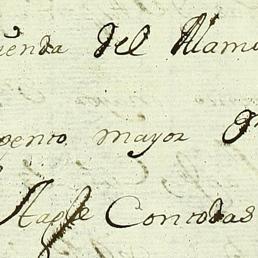 ienda del Alami
gento mayor
Hagle Con todas